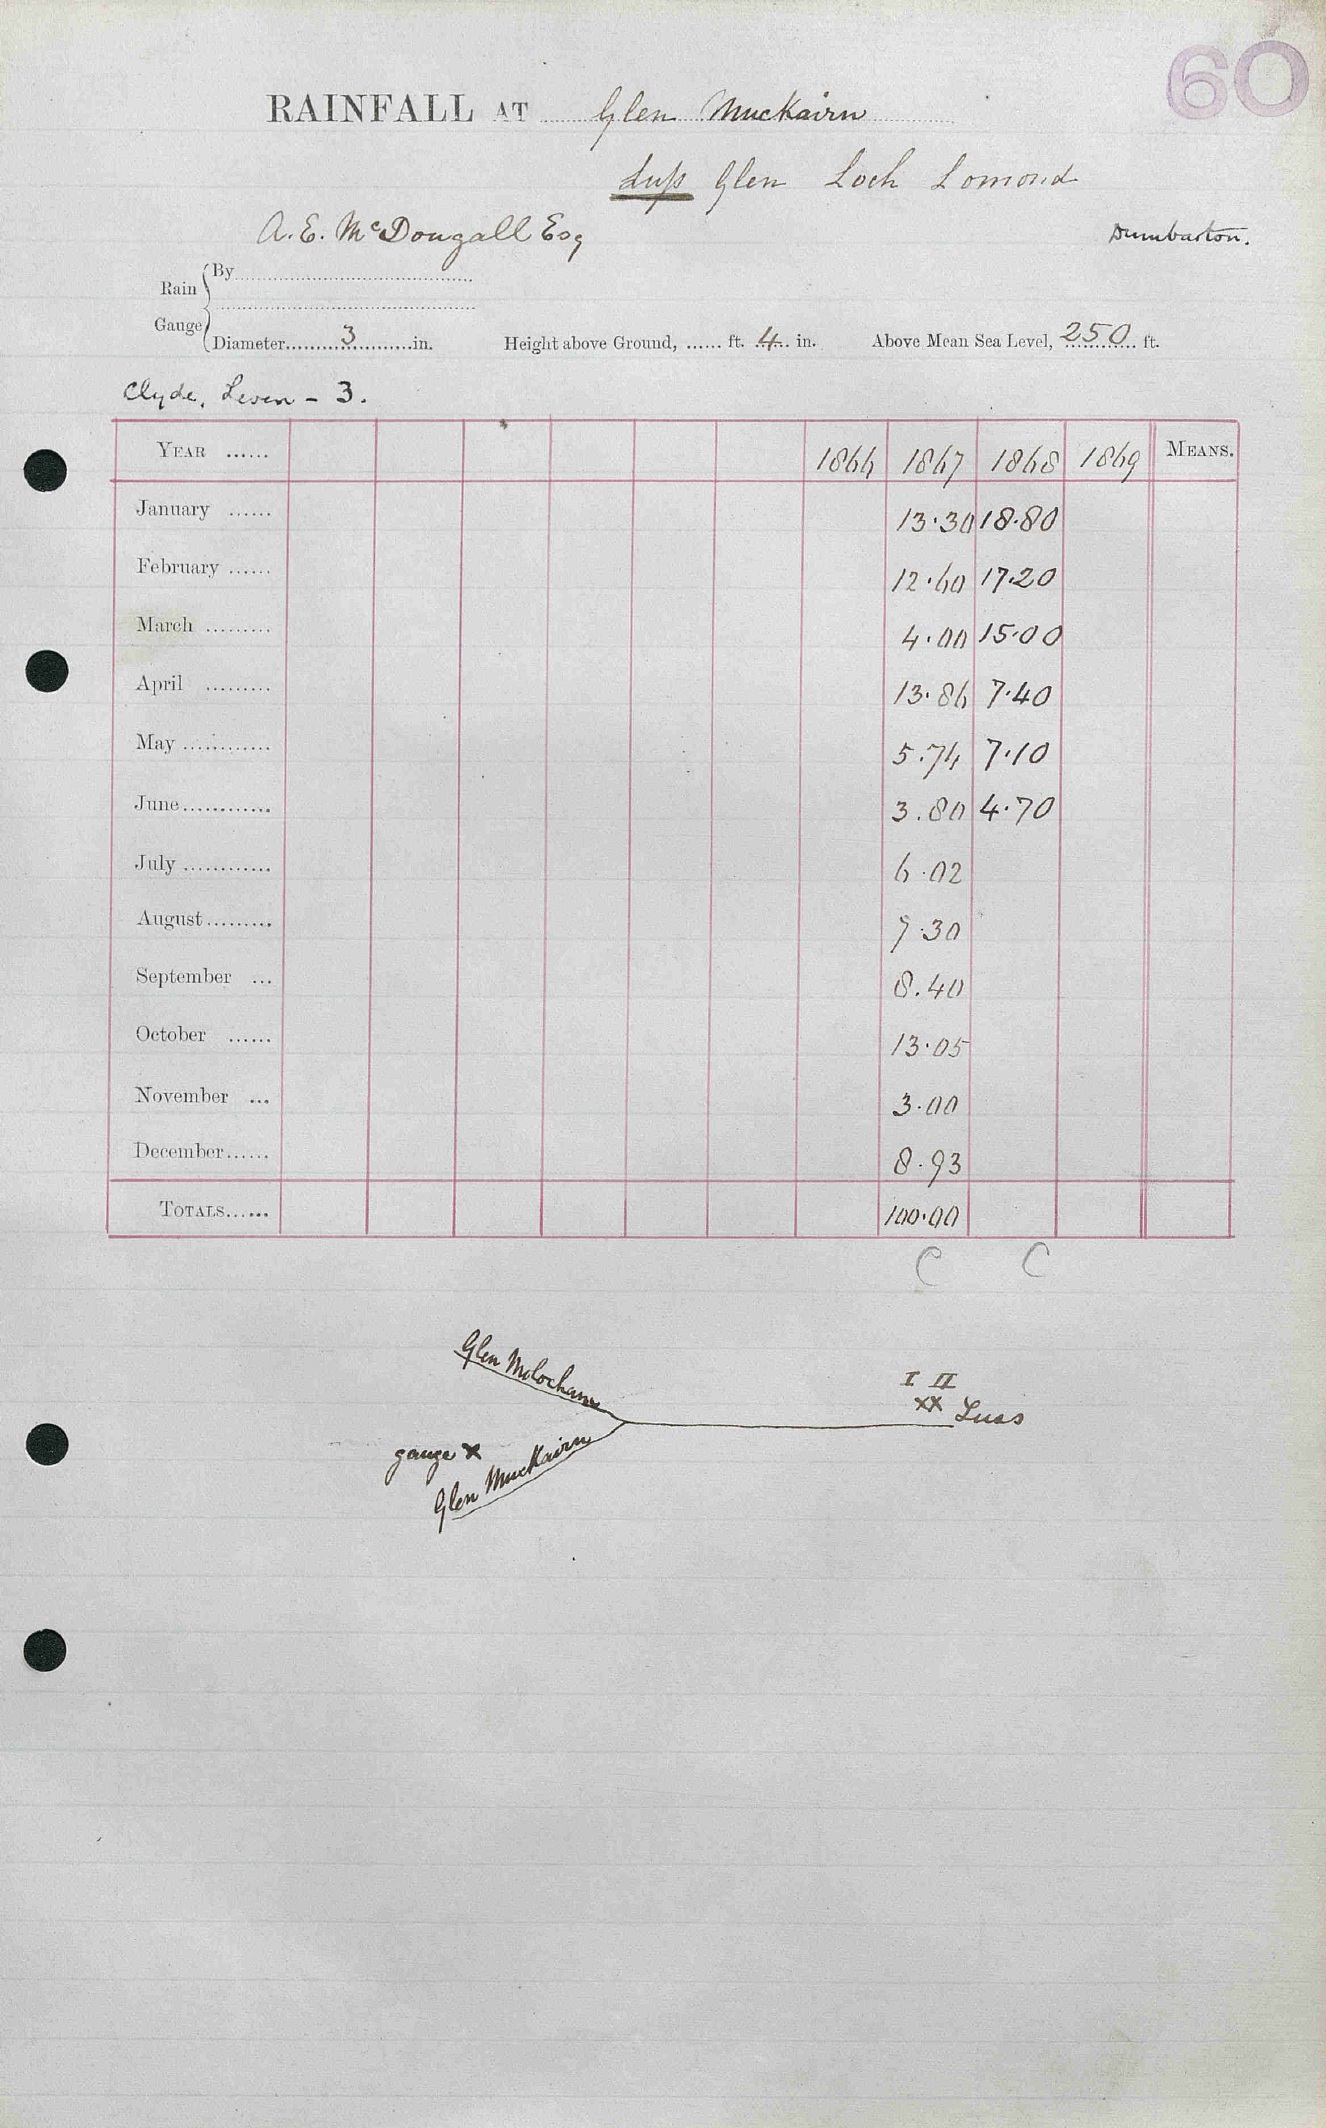 60
RAINFALL AT Glen Muckairn
Luss Glen Loch Lomond
A. E. McDougall Esq Dumbarton.
Rain Gauge
By
Diameter 3 in. Height above Ground, ...... ft. 4 in. Above Mean Sea Level, 250 ft.
Clyde, Leven - 3.
YEAR ...... 1866 1867 1868 1869 MEANS.
January ...... 13.30 18.80
February ...... 12.60 17.20
March ......... 4.00 15.00
April ......... 13.86 7.40
May ............ 5.74 7.10
June ............ 3.80 4.70
July ............ 6.02
August ......... 7.30
September ... 8.40
October ...... 13.05
November ... 3.00
December ...... 8.93
TOTALS ...... 100.00
C C
Glen Molochan
I II
xx Luss
gauge x
Glen Muckairn